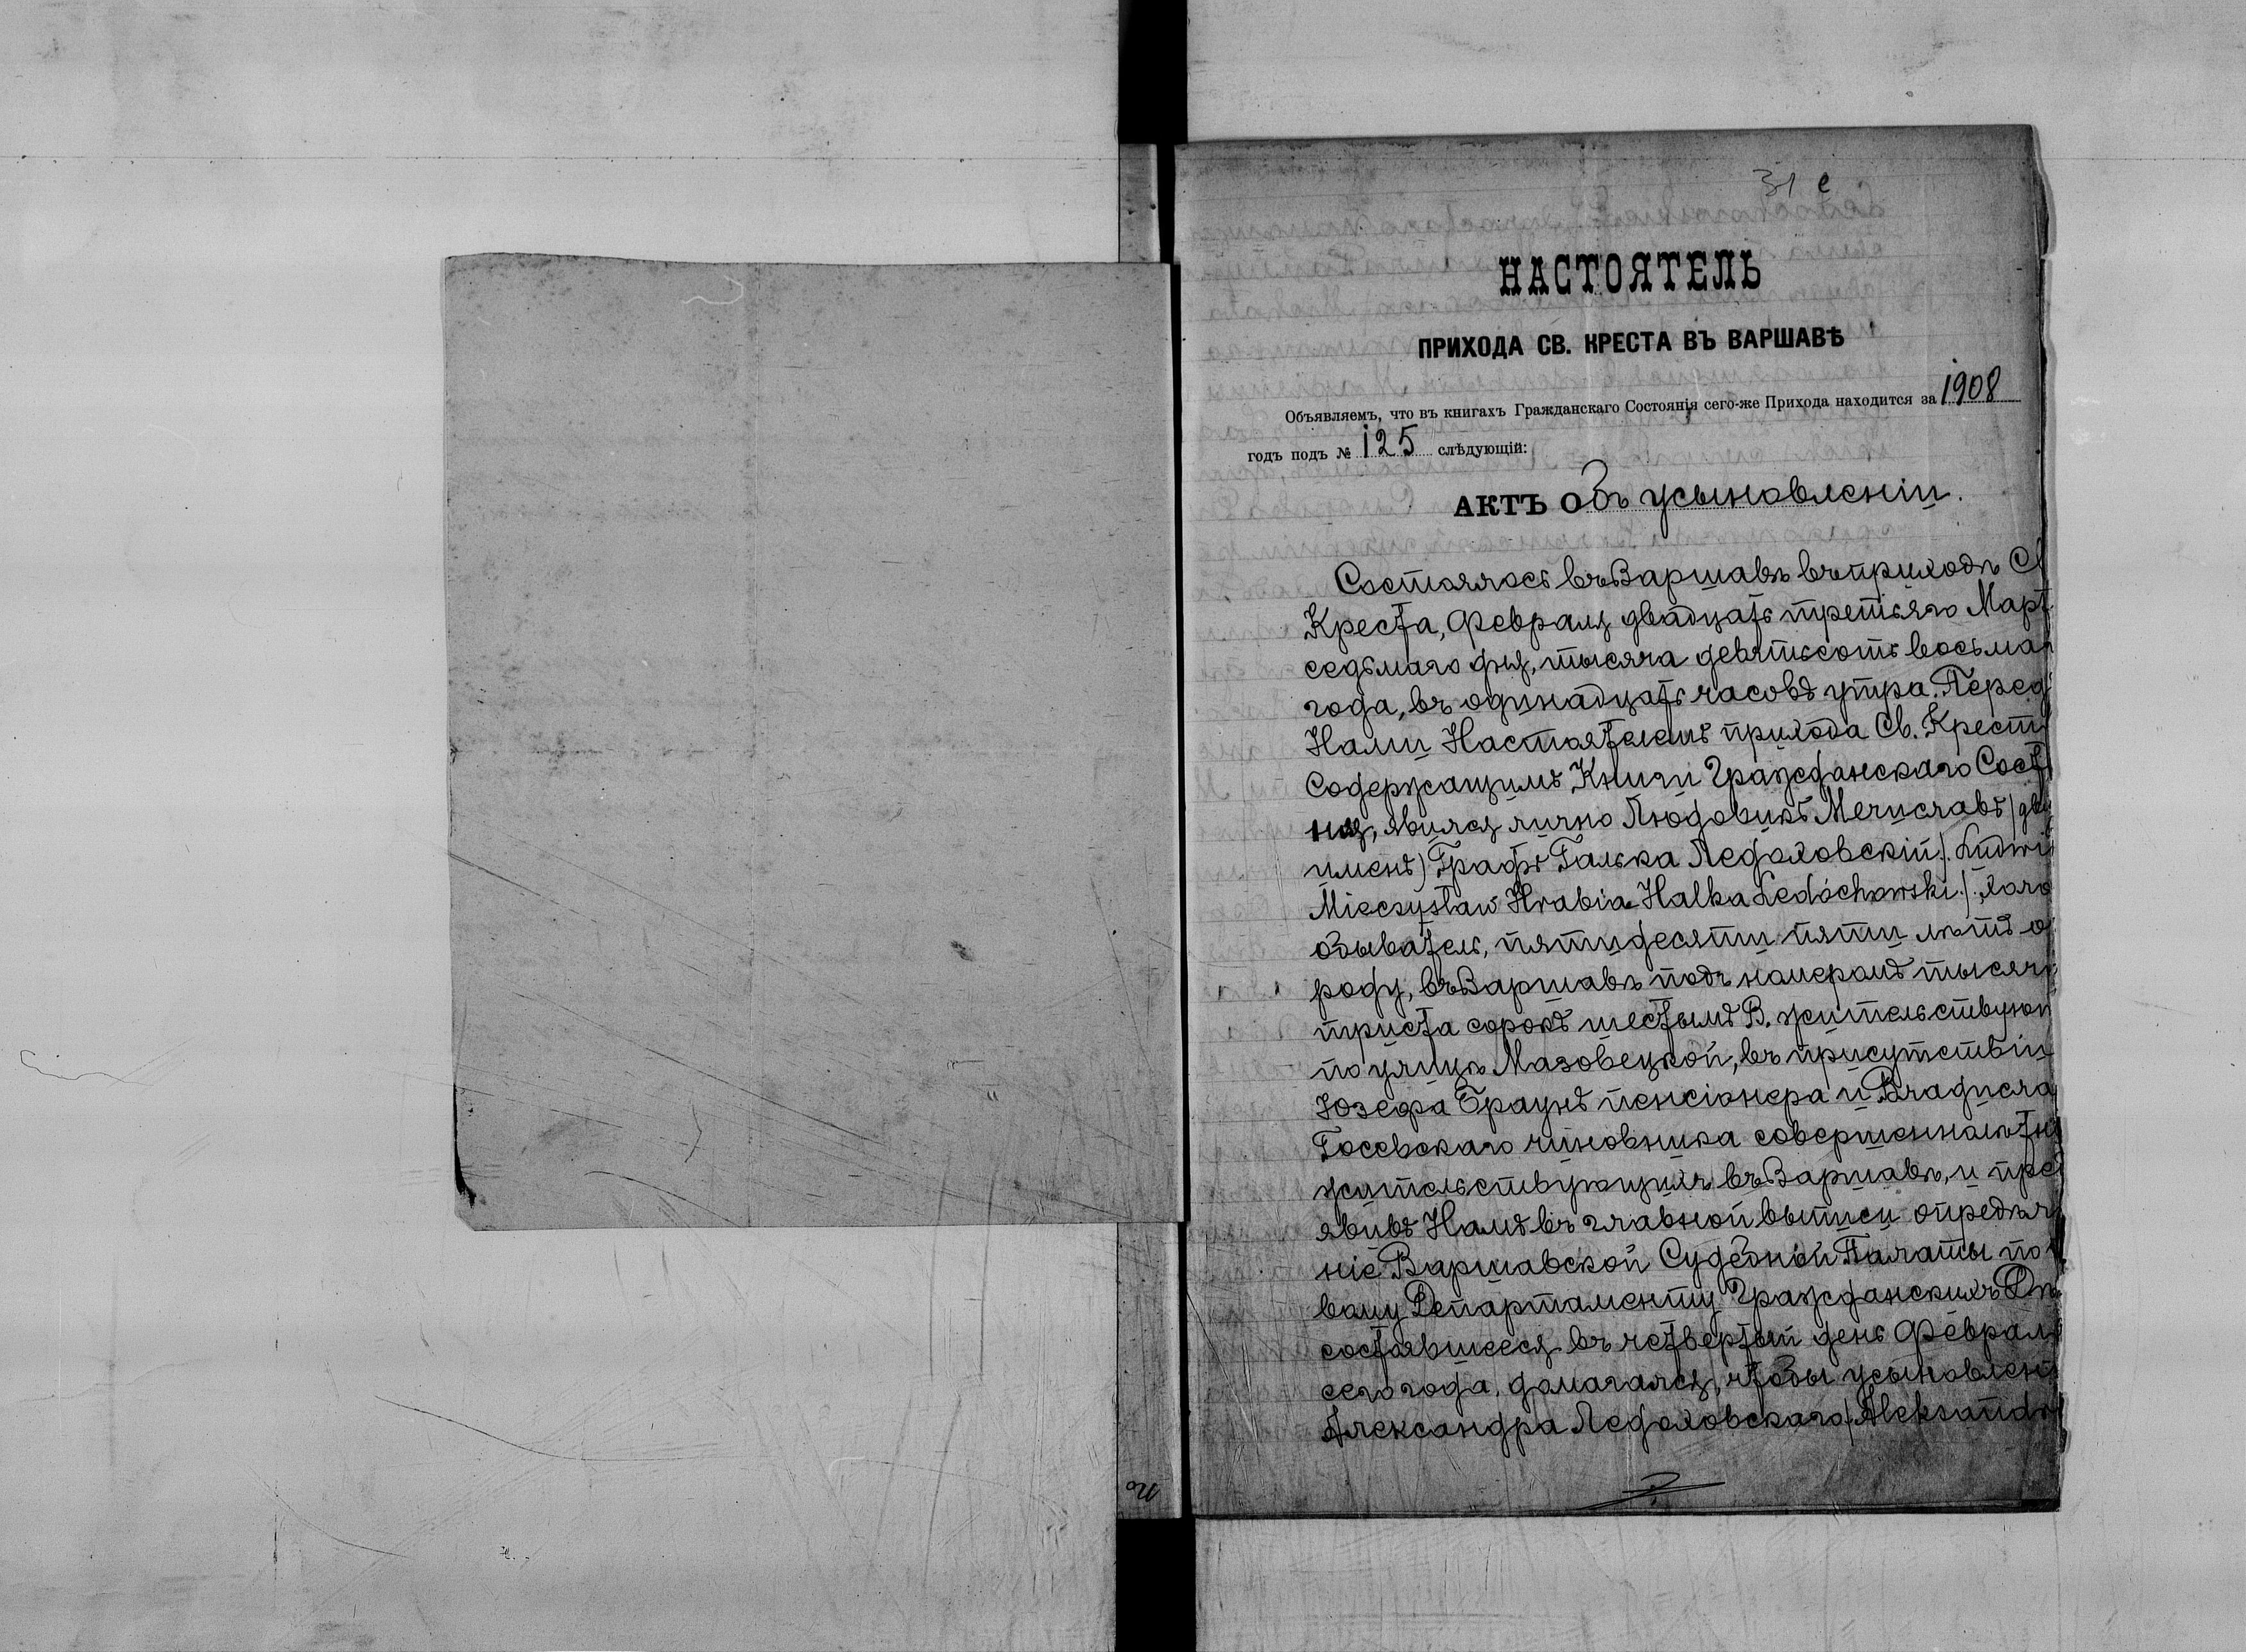 31 e
НАСТОЯТЕЛЬ
ПРИХОДА СВ. КРЕСТА ВЪ ВАРШАВѢ
Объявляемъ, что въ книгахъ Гражданскаго Состоянія сего-же Прихода находится за 1908
годъ подъ № 125 слѣдующій:
АКТЪ Объ усыновленіи.
Состоялось въ Варшавѣ въ приходѣ Св
Креста, Февраля двадцать третьяго Март
седьмого дня, тысяча девятьсотъ восьмаг
года, въ одинадцать часовъ утра. Передъ
Нами Настоятелемъ прихода Св. Креста
Содержащимъ Книги Гражданскаго Состо
нія, явился лично Людовикъ Мечиславъ /дву
именъ) Графъ Галька Ледоховскій /. Ludwi
Mieczysław Hrabia Halka Ledóchowski /.
обыватель, пятидесяти пяти лѣтъ о
роду, въ Варшавѣ подъ номеромъ тысяча
триста сорокъ шестымъ В. жительствующ
по улицѣ Мазовецкой, въ присутствіи
Юзефа Браунъ пенсіонера и Владисла
Госевскаго чиновника совершеннолѣтн
жительствующихъ въ Варшавѣ, и пред
явивъ Намъ въ главной выписи опредѣле
ніе Варшавской Судебной Палаты по
вому Департаменту Гражданскихъ Дѣ
состоявшееся въ четвертый день Февраля
сего года, домагался, чтобы усыновлені
Александра Ледоховскаго /Aleksandr